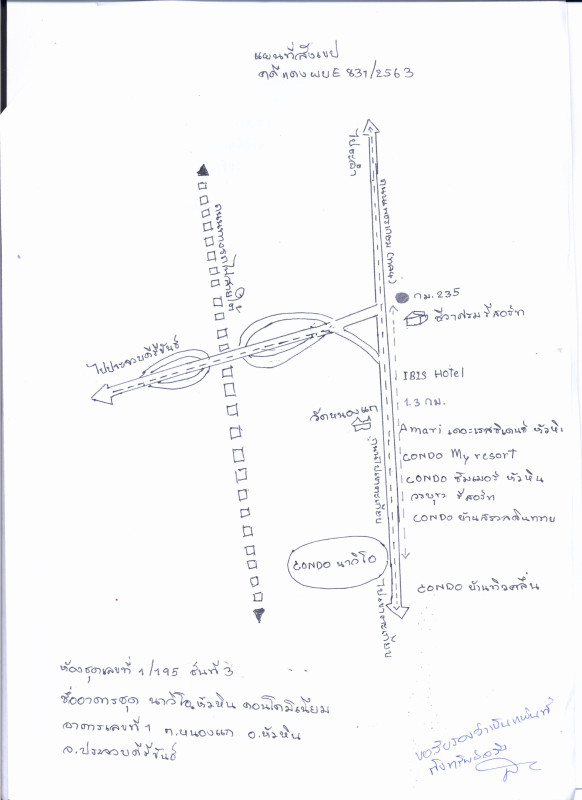 แผนที่สังเขป
คดีแดง ผบE 831/2563
ไปชะอำ
ถนนเพชรเกษม (เก่า)
ถนนทางรถไฟสายใต้
กม.235
ชีวาศรม รีสอร์ท
ไปประจวบคีรีขันธ์
IBIS Hotel
1.3 กม.
วัดหนองแก
Amari เดอะเรสซิเดนซ์ หัวหิน
CONDO My resort
ถนนไปเขาตะเกียบ
CONDO ซัมเมอร์ หัวหิน
รีสอร์ท
CONDO บ้านสราญ
CONDO นาวีโอ
CONDO บ้านทิวคลื่น
ไปเขาตะเกียบ
ห้องชุดเลขที่ 1/195 ชั้นที่ 3
ชื่ออาคารชุด นาวีโอ หัวหิน คอนโดมิเนียม
อาคารเลขที่ 1 ต.หนองแก อ.หัวหิน
จ.ประจวบคีรีขันธ์
ขอรับรองว่าเป็นแผนที่
ตั้งทรัพย์จริง